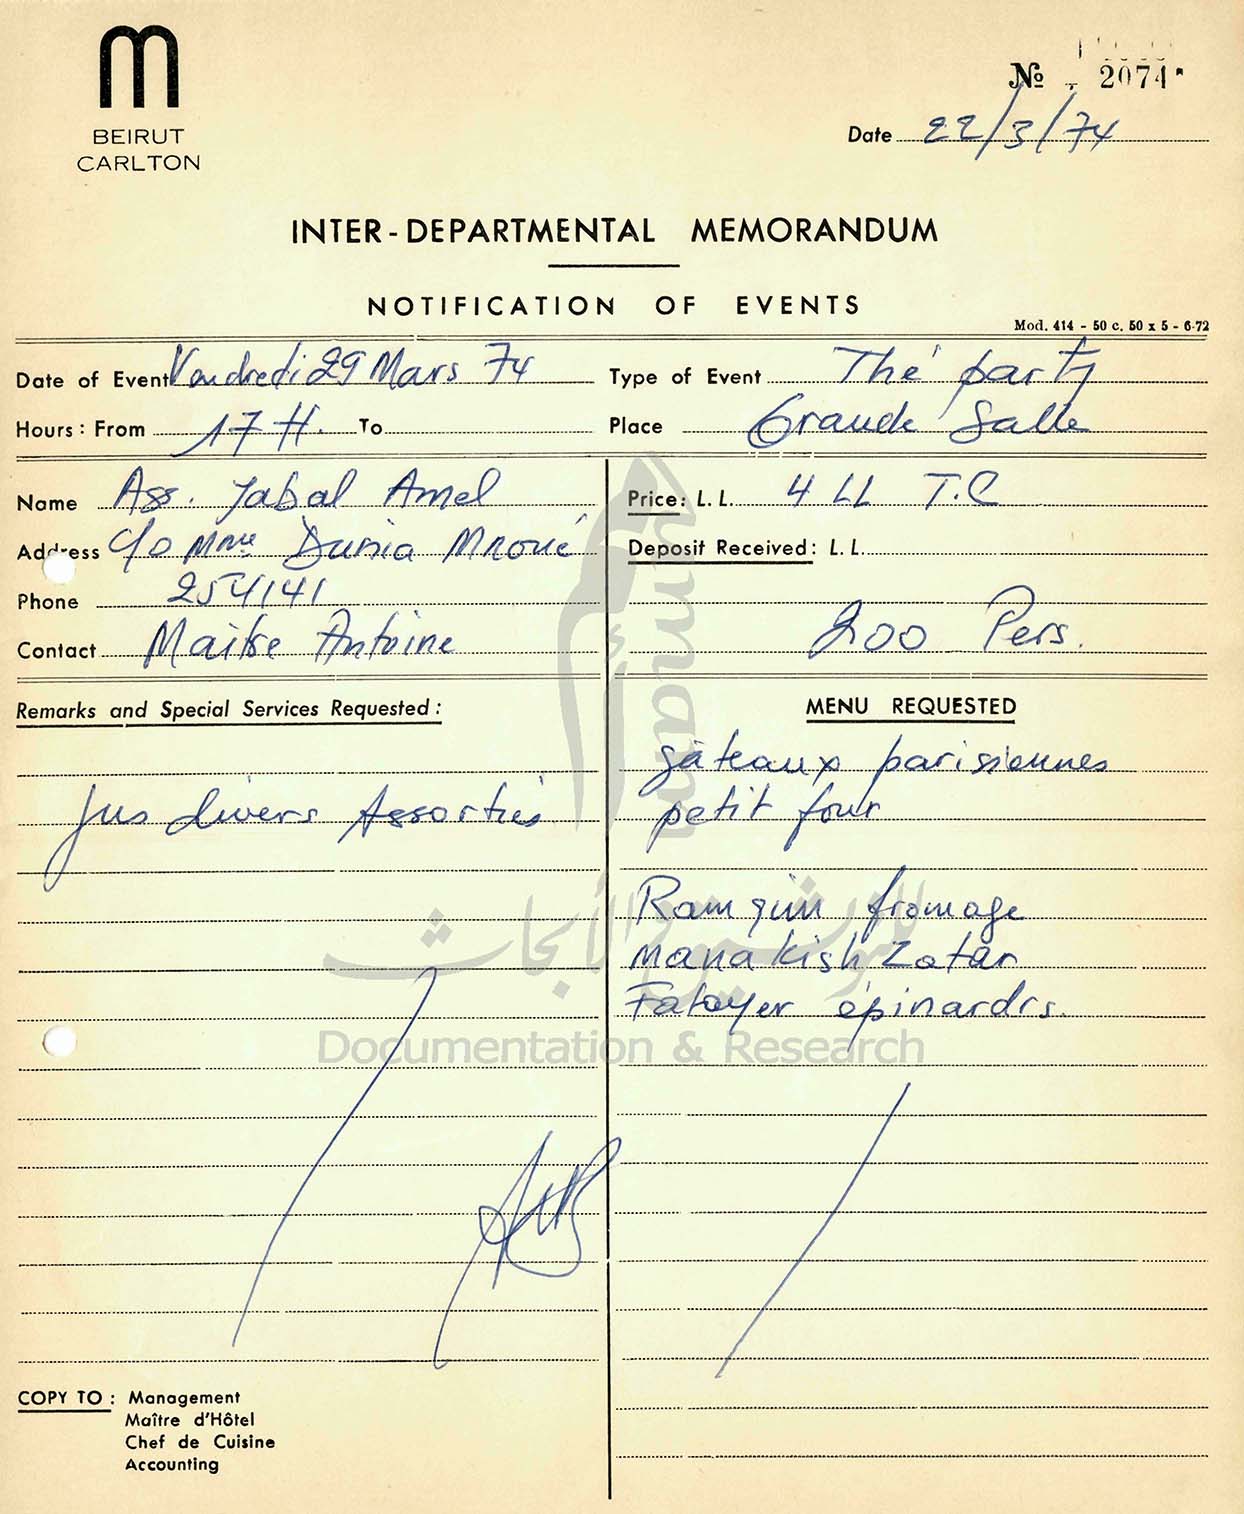 m
BEIRUT
CARLTON
№ 2074
Date 22/3/74
INTER-DEPARTMENTAL MEMORANDUM
NOTIFICATION OF EVENTS
Mod. 414 - 50 c. 50 x 5 - 6-72
Date of Event Vendredi 29 Mars 74
Type of Event Thé party
Hours : From 17 H. To
Place Grande Salle
Name Ass. Jabal Amel
Price: L.L. 4 LL T.C
Address C/o Mme Dunia Mroué
Deposit Received: L.L.
Phone 254141
Contact Maitre Antoine
200 Pers.
Remarks and Special Services Requested :
MENU REQUESTED
gâteaux parisiennes
Jus divers Assortiés
petit four
Ramquin fromage
Manakish Zatar
Fatayer épinardrs.
umam
للتوثيق والأبحاث
Documentation & Research
COPY TO : Management
Maître d'Hôtel
Chef de Cuisine
Accounting